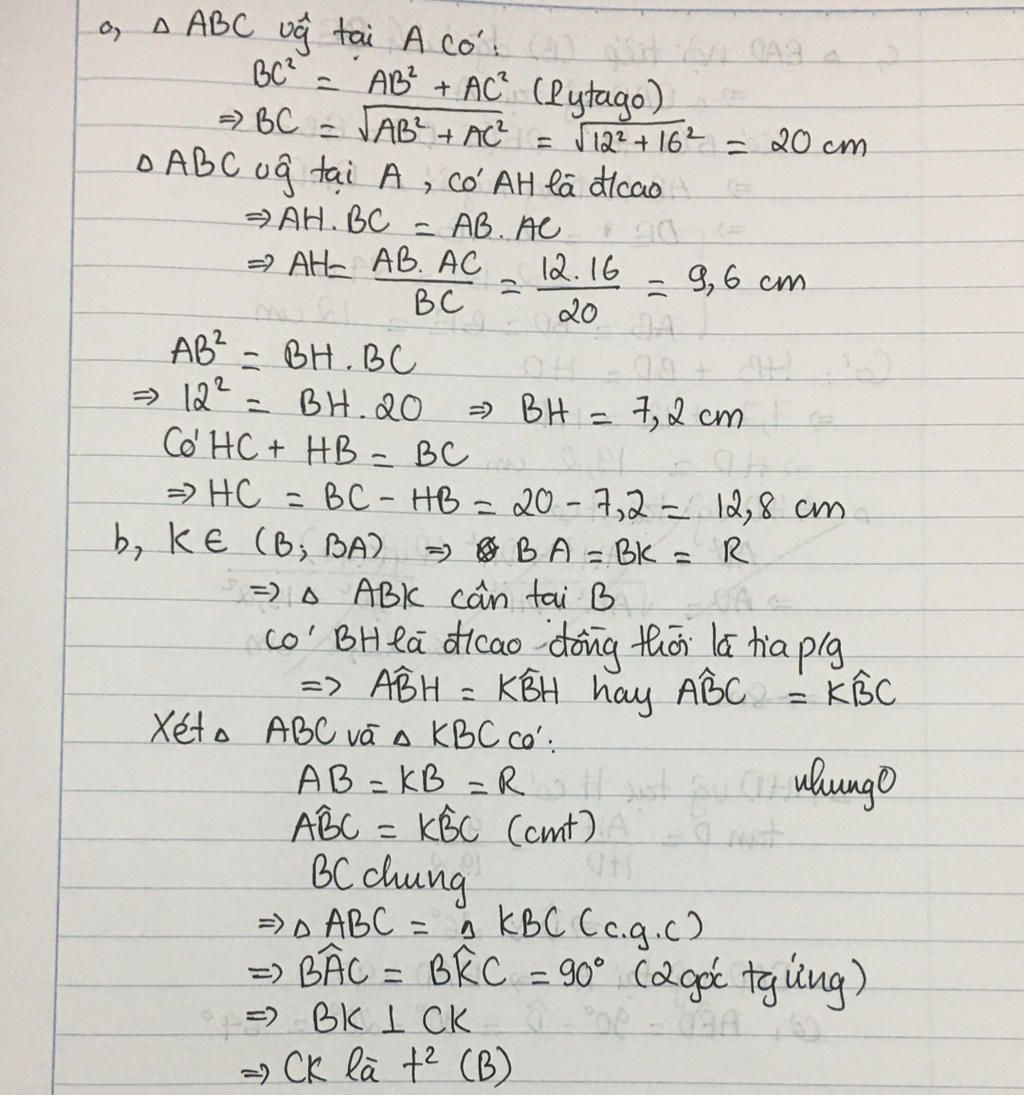 a, △ ABC vg̃ tại A có:
BC² = AB² + AC² (Pytago)
⇒ BC = √(AB² + AC²) = √(12² + 16²) = 20 cm
△ ABC vg̃ tại A, có AH là đ/cao
⇒ AH.BC = AB.AC
⇒ AH = AB.AC/BC = 12.16/20 = 9,6 cm
AB² = BH.BC
⇒ 12² = BH.20 ⇒ BH = 7,2 cm
Có HC + HB = BC
⇒ HC = BC - HB = 20 - 7,2 = 12,8 cm
b, K ∈ (B; BA) ⇒ BA = BK = R
⇒ △ ABK cân tại B
có BH là đ/cao đồng thời là tia p/g
⇒ AB̂H = KB̂H hay AB̂C = KB̂C
Xét △ ABC và △ KBC có:
AB = KB = R nhung0
AB̂C = KB̂C (cmt)
BC chung
⇒ △ ABC = △ KBC (c.g.c)
⇒ BÂC = BK̂C = 90° (2 góc tg ứng)
⇒ BK ⊥ CK
⇒ CK là t² (B)